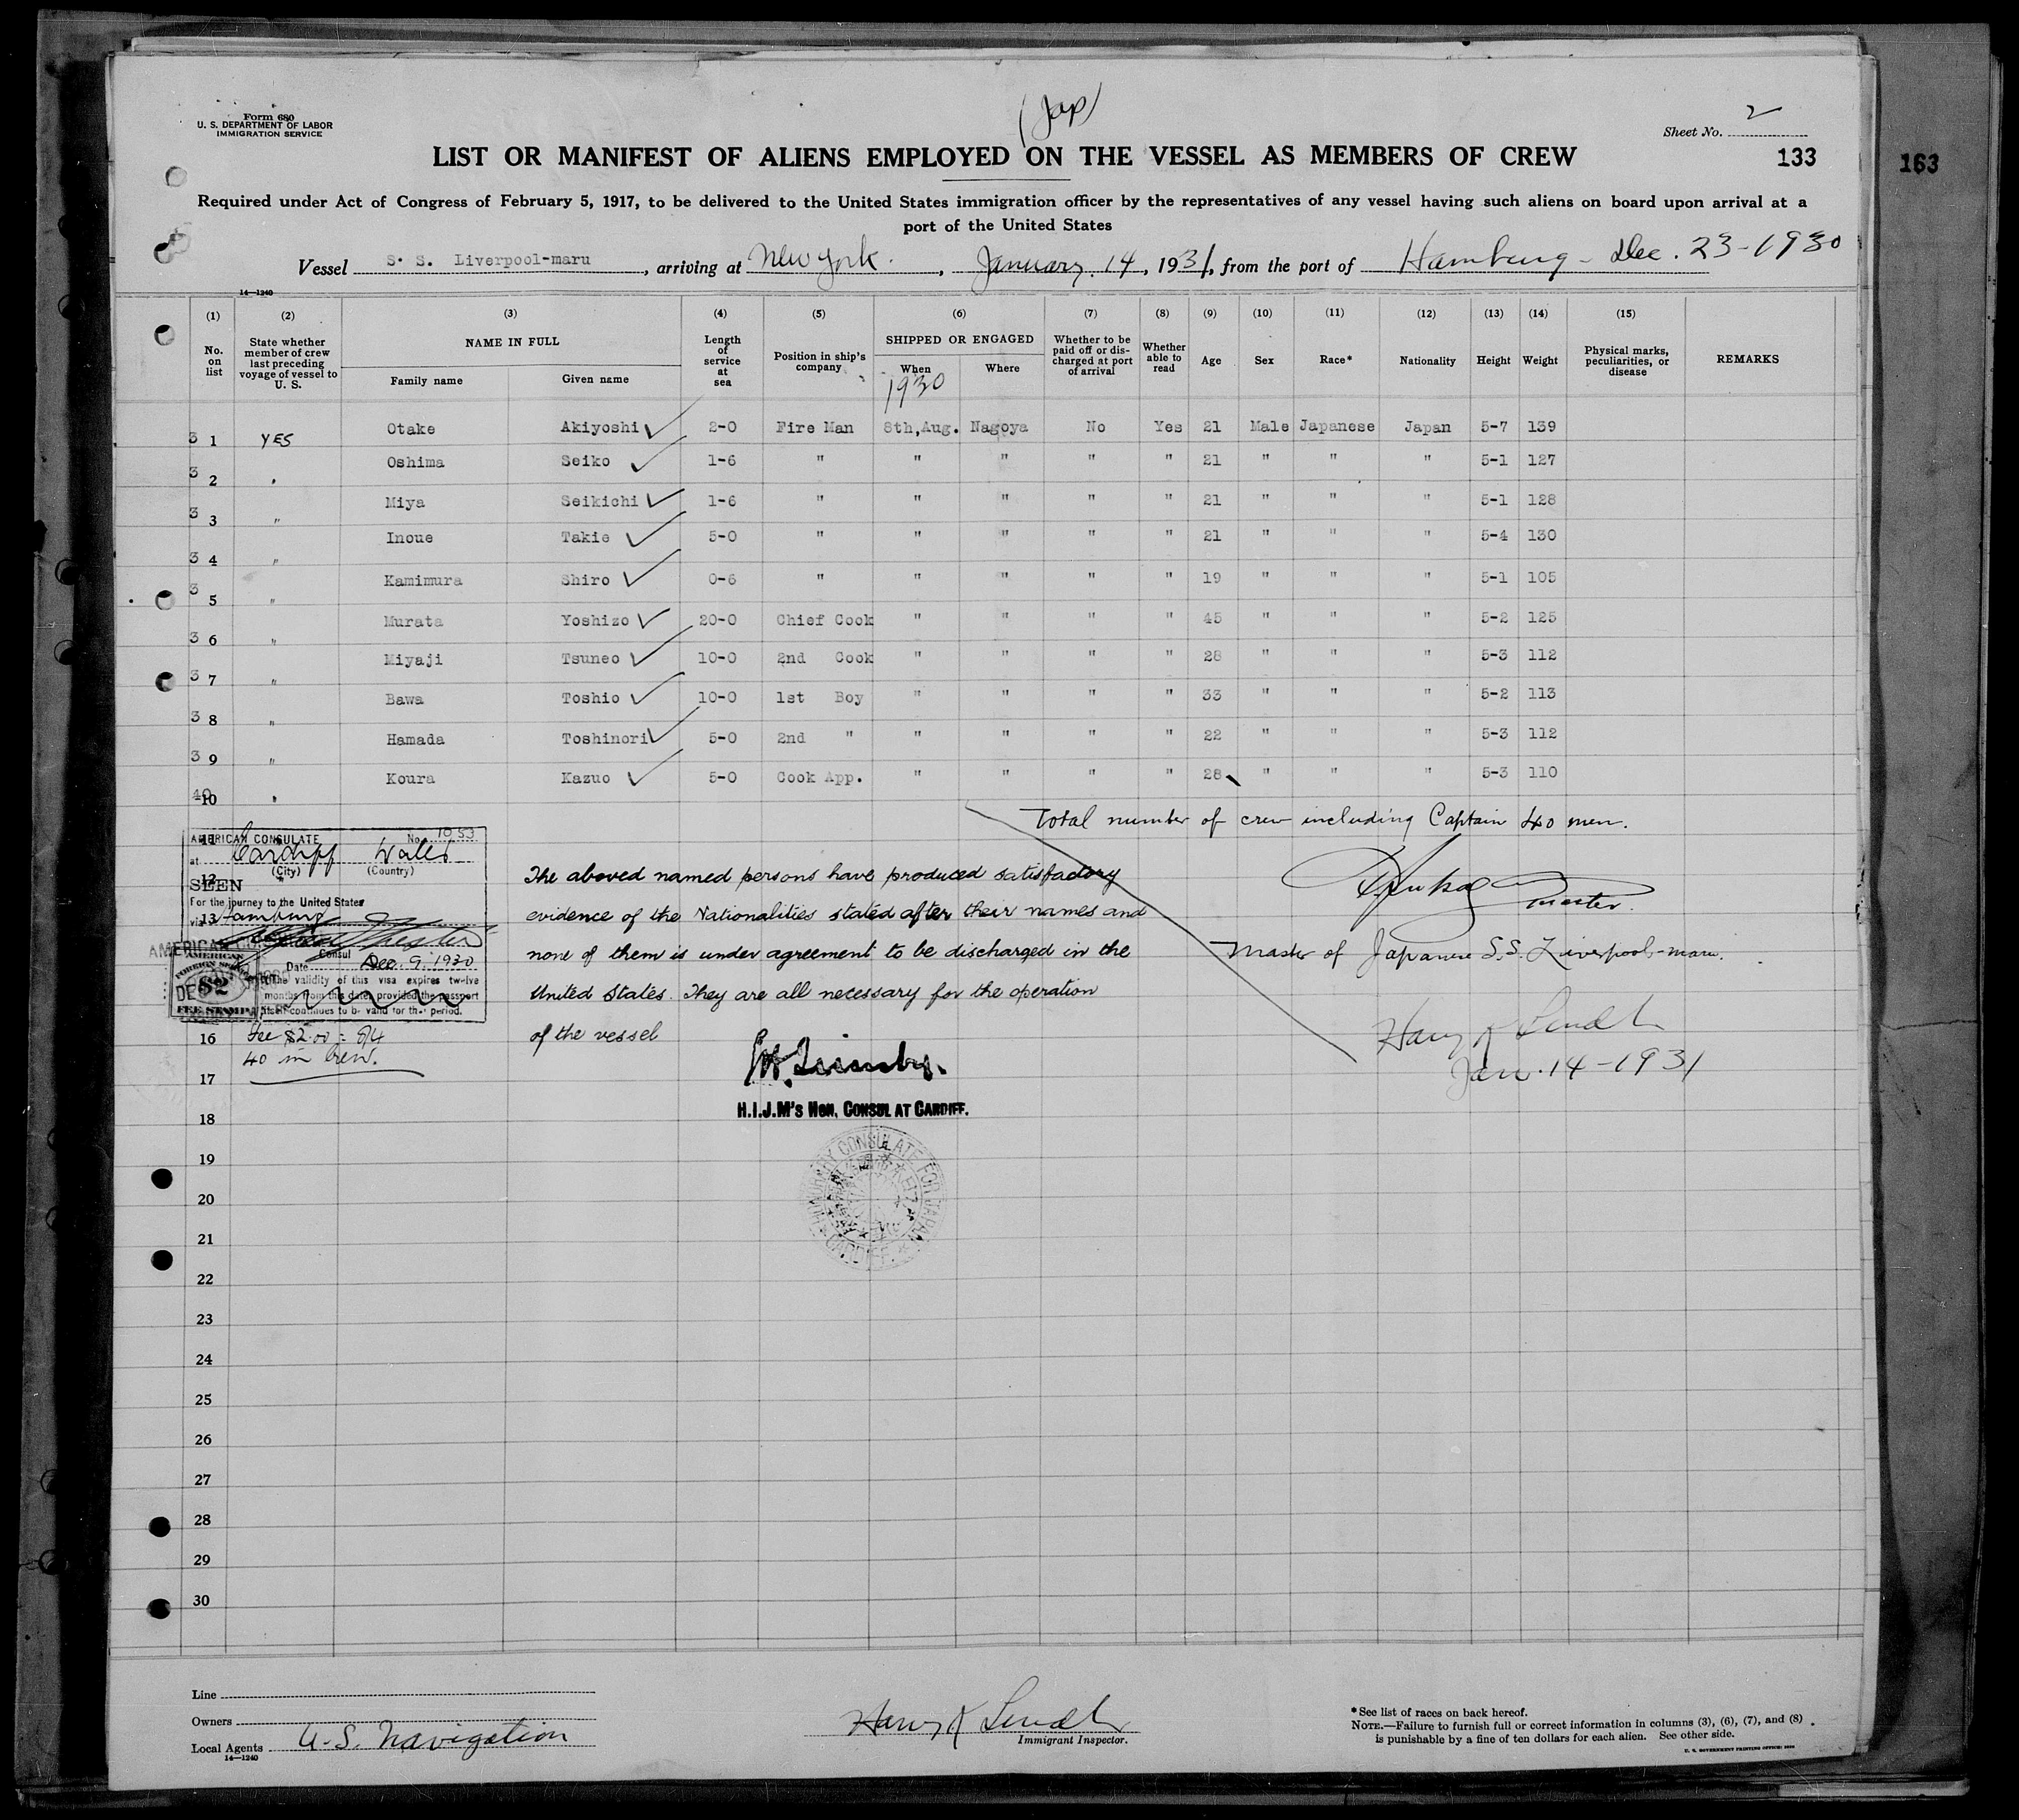 Form 680
U. S. DEPARTMENT OF LABOR
IMMIGRATION SERVICE
(Jap)
Sheet No. 2
LIST OR MANIFEST OF ALIENS EMPLOYED ON THE VESSEL AS MEMBERS OF CREW
133
163
Required under Act of Congress of February 5, 1917, to be delivered to the United States immigration officer by the representatives of any vessel having such aliens on board upon arrival at a
port of the United States
Vessel S. S. Liverpool-maru, arriving at New York, January 14, 1931, from the port of Hamburg - Dec. 23-1930
14—1240
(1) No. on list (2) State whether member of crew last preceding voyage of vessel to U. S. (3) NAME IN FULL Family name Given name (4) Length of service at sea (5) Position in ship's company (6) SHIPPED OR ENGAGED When Where (7) Whether to be paid off or discharged at port of arrival (8) Whether able to read (9) Age (10) Sex (11) Race* (12) Nationality (13) Height (14) Weight (15) Physical marks, peculiarities, or disease REMARKS
1930
3 1 YES Otake Akiyoshi 2-0 Fire Man 8th,Aug. Nagoya No Yes 21 Male Japanese Japan 5-7 139
3 2 " Oshima Seiko 1-6 " " " " " 21 " " " 5-1 127
3 3 " Miya Seikichi 1-6 " " " " " 21 " " " 5-1 128
3 4 " Inoue Takie 5-0 " " " " " 21 " " " 5-4 130
3 5 " Kamimura Shiro 0-6 " " " " " 19 " " " 5-1 105
3 6 " Murata Yoshizo 20-0 Chief Cook " " " " 45 " " " 5-2 125
3 7 " Miyaji Tsuneo 10-0 2nd Cook " " " " 28 " " " 5-3 112
3 8 " Bawa Toshio 10-0 1st Boy " " " " 33 " " " 5-2 113
3 9 " Hamada Toshinori 5-0 2nd " " " " " 22 " " " 5-3 112
40 10 " Koura Kazuo 5-0 Cook App. " " " " 28 " " " 5-3 110
Total number of crew including Captain 40 men.
AMERICAN CONSULATE No. 1053
at Cardiff Wales
(City) (Country)
SEEN
For the journey to the United States
via Hamburg
Consul
Date Dec. 9. 1930
The validity of this visa expires twelve
months from this date, provided the passport
itself continues to be valid for that period.
AMERICAN
FOREIGN SERVICE
$2
FEE STAMP
Fee $2.00 = 8/4
40 in Crew.
The aboved named persons have produced satisfactory
evidence of the Nationalities stated after their names and
none of them is under agreement to be discharged in the
United States. They are all necessary for the operation
of the vessel
H.I.J.M's HON, CONSUL AT CARDIFF.
HONORARY CONSULATE FOR JAPAN
CARDIFF
Master.
Master of Japanese S.S. Liverpool-maru.
Harry K Lindl
Jan. 14-1931
11
12
13
16
17
18
19
20
21
22
23
24
25
26
27
28
29
30
Line
Owners
Local Agents U.S. Navigation
14—1240
Harry K Lindl
Immigrant Inspector.
*See list of races on back hereof.
NOTE.—Failure to furnish full or correct information in columns (3), (6), (7), and (8)
is punishable by a fine of ten dollars for each alien. See other side.